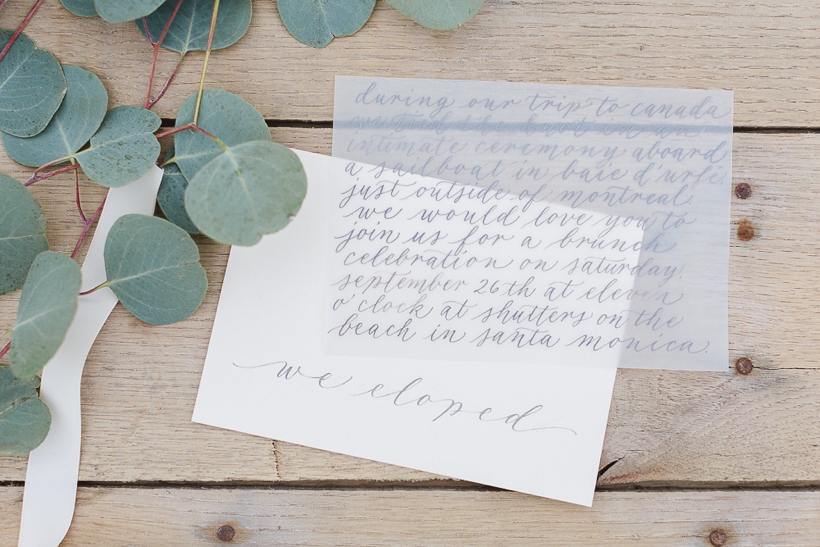 during our trip to canada
we tied the knot in an
intimate ceremony aboard
a sailboat in baie d'urfe
just outside of montreal.
we would love you to
join us for a brunch
celebration on saturday,
september 26th at eleven
o'clock at shutters on the
beach in santa monica.
we eloped